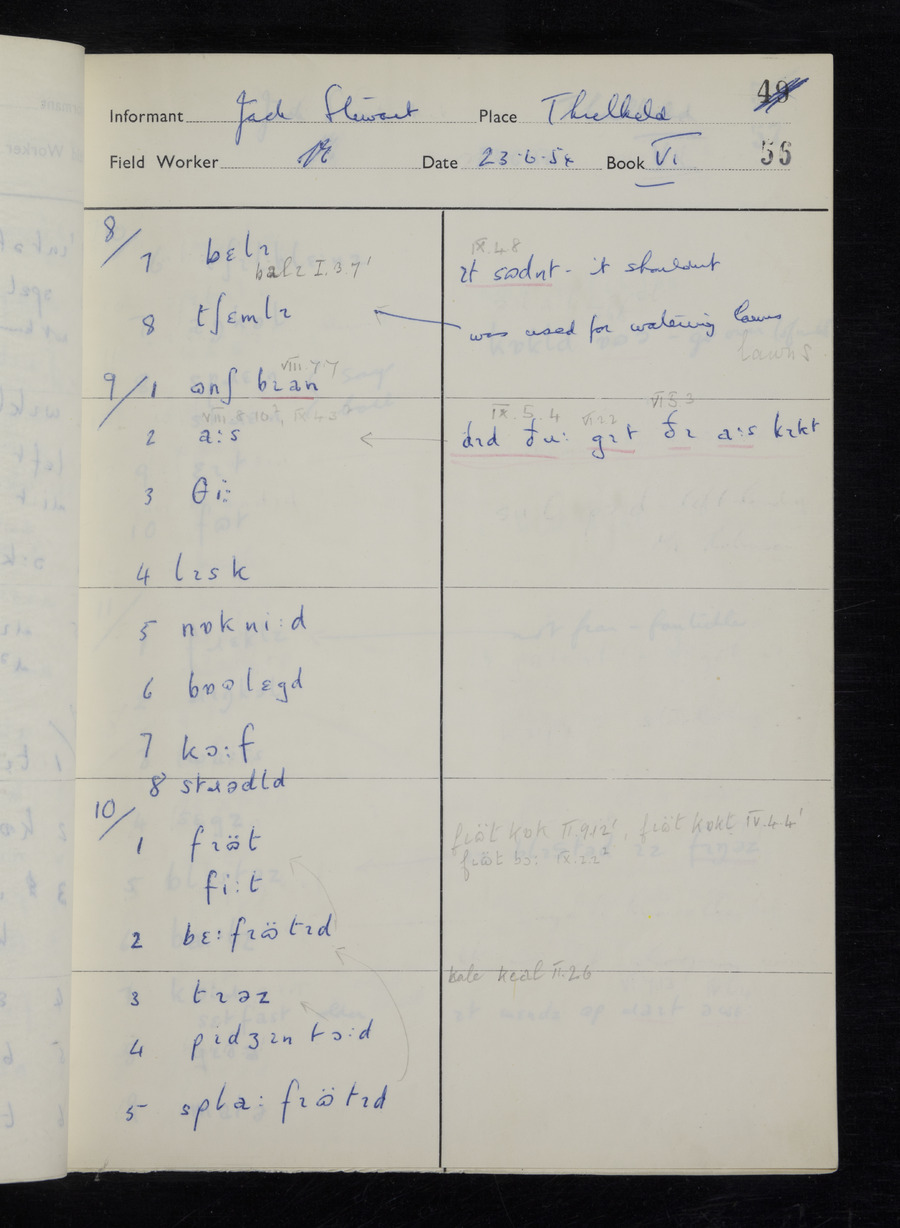 49
Informant Jack Stewart Place Threlkeld
Field Worker Date 23.6.54 Book VI 56
8/7 bɛlɪ
balɪ I.3.7'
IX.4.8
ɪt sʊdnt - it shouldnt
8 tʃɛmlɪ
was used for watering lawns
lawns
VIII.7.7
9/1 ʊnʃ bɪan
VIII.8.10, IX.4.3
2 a:s
IX.5.4 VI.2.2 VI.5.3
dɪd ðu: gɪt ðɪ a:s kɪkt
3 θi:
4 lɪsk
5 nɒkni:d
6 bʊəlɛgd
7 kɔ:f
8 stɹədld
10/1 frɪöt
frɪöt kɒk II.9.12', frɪöt kɒkt IV.4.4'
frɪöt bɔ: IX.2.2²
fi:t
2 bɛ:fɪöʊtɪd
3 tɪəz
kale keəl II.2.6
4 pɪdʒɪntɔ:d
5 spla:fɪöʊtɪd